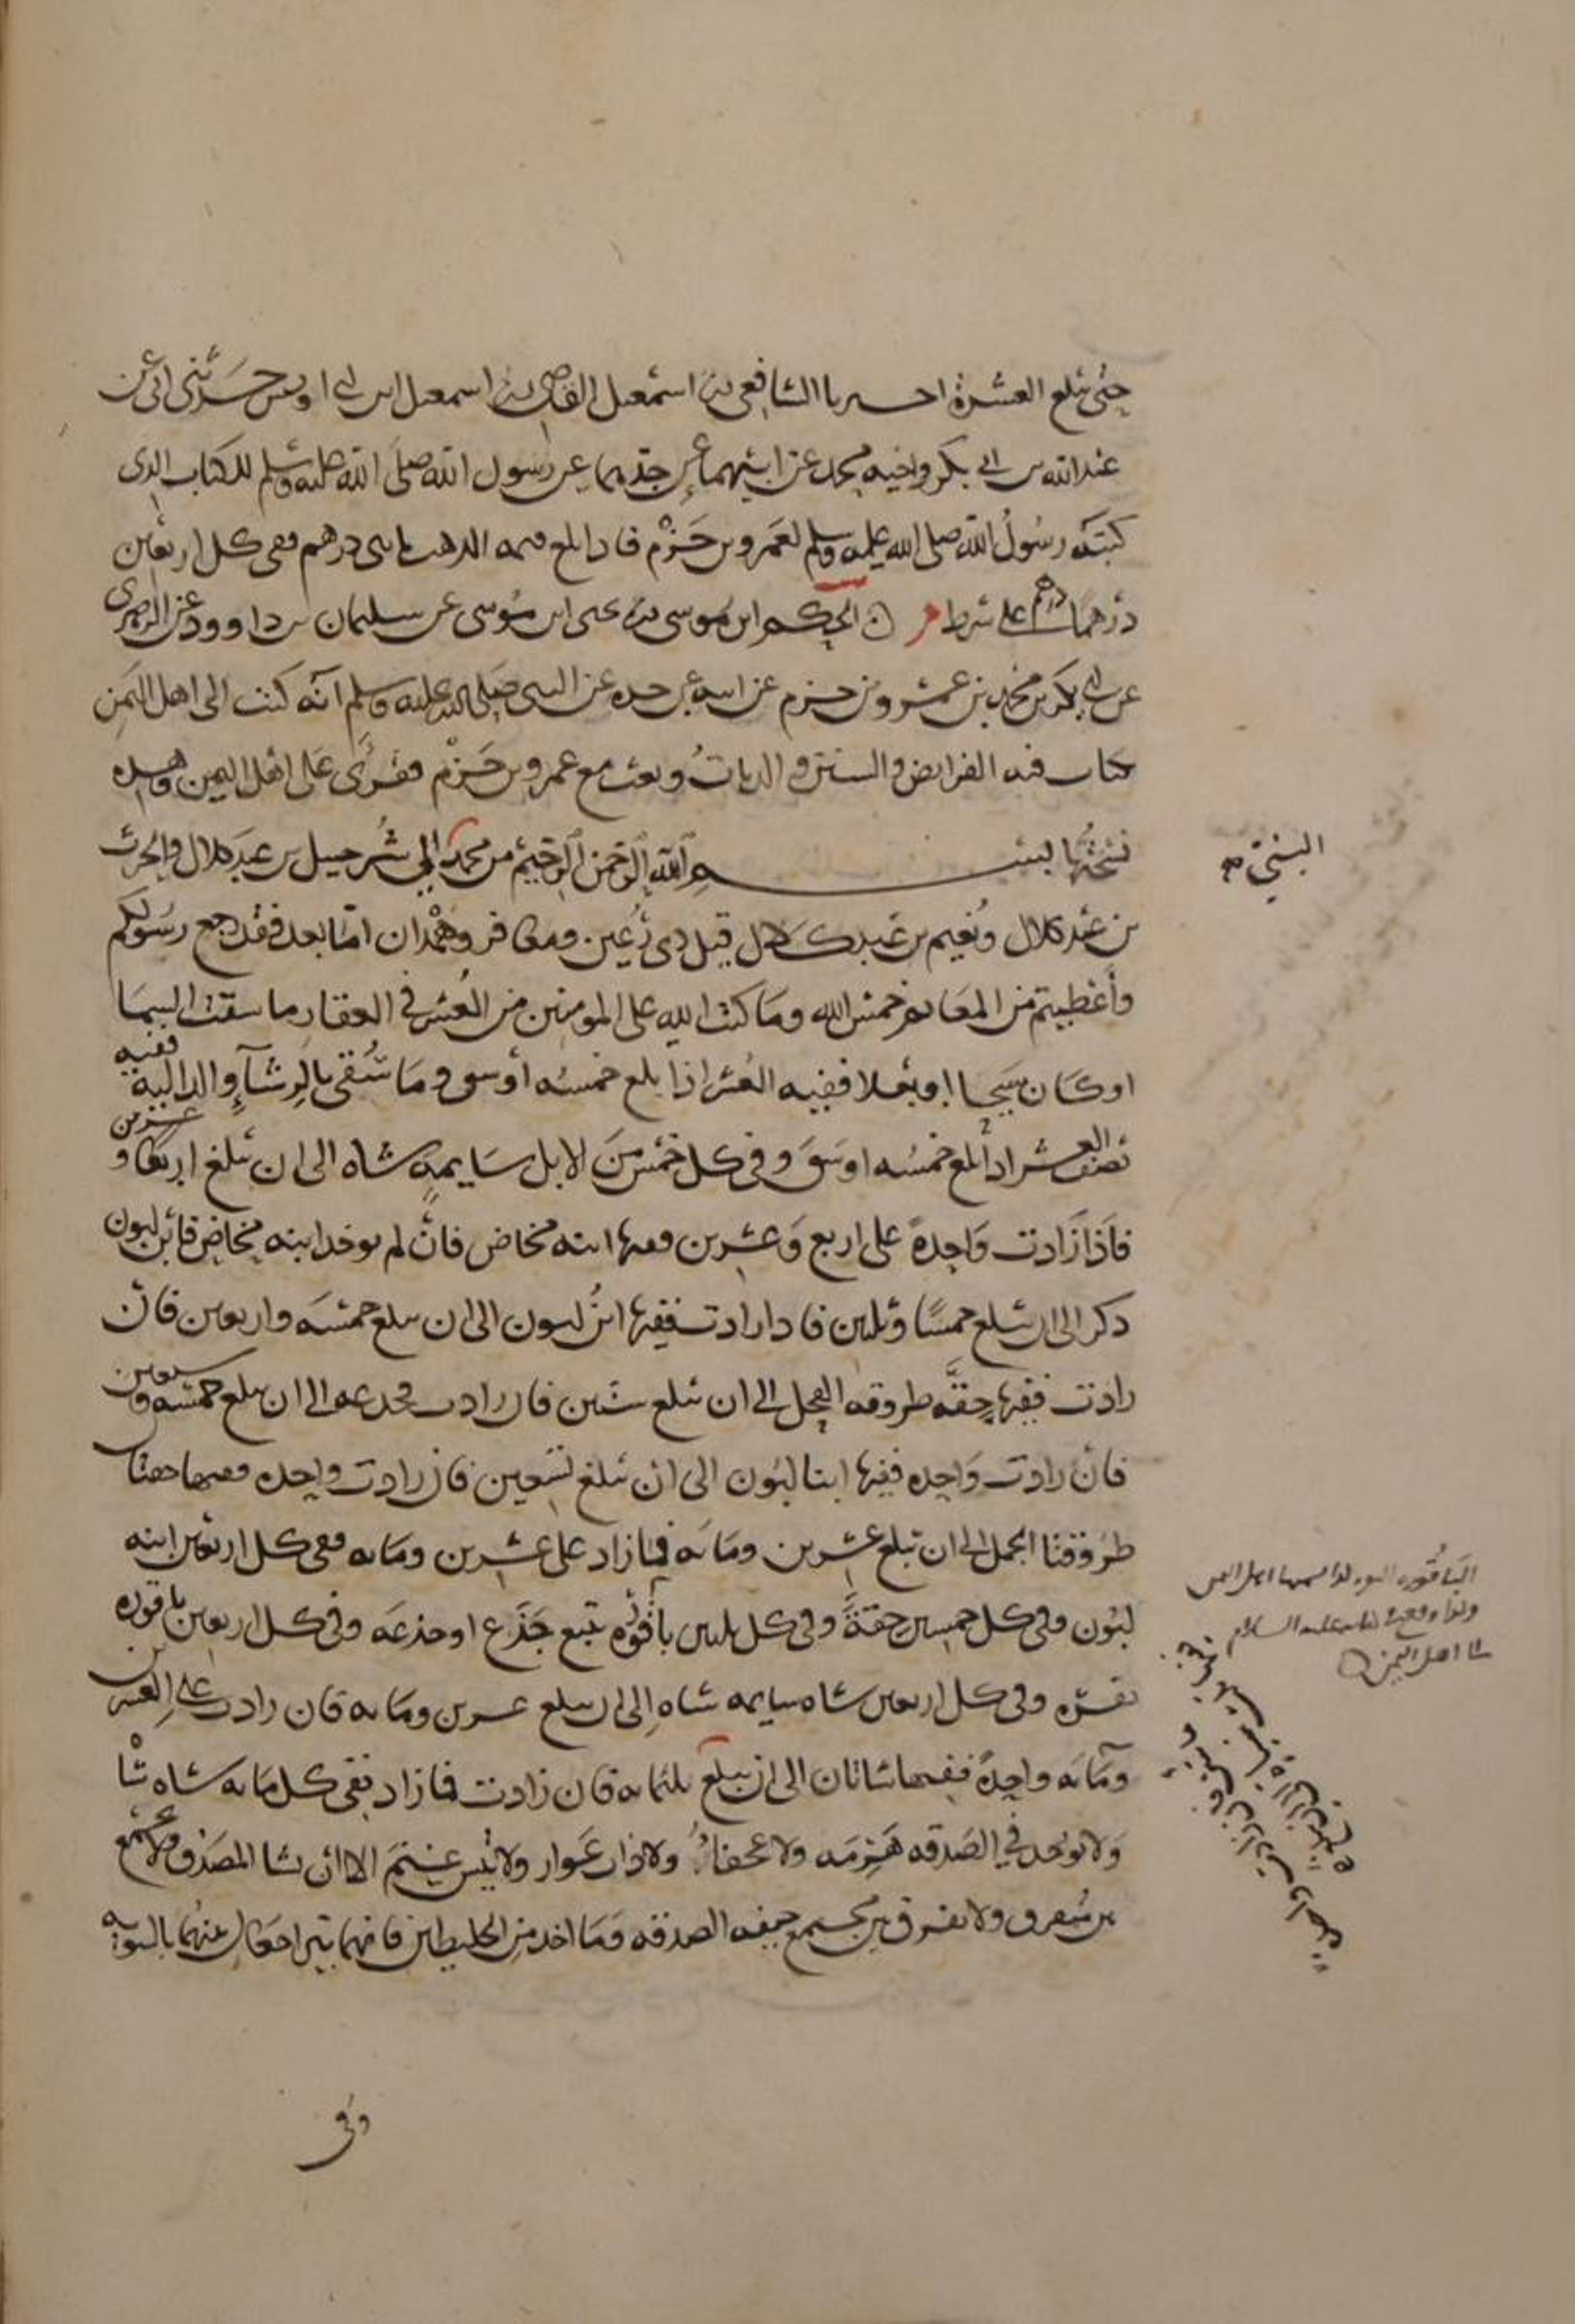 حتى تبلغ العشرة اخبرنا الشافعي ثنا اسمعيل القاضي ثنا اسمعيل ابن ابي اويس حدثني ابي عن
عبد الله بن ابي بكر واخيه محمد عن ابيهما عن جدهما عن رسول الله صلى الله عليه وسلم الكتاب الذى
كتبه رسول الله صلى الله عليه وسلم لعمرو بن حزم فاذا بلغ قيمه الذهب مايتى درهم ففى كل اربعين
درهما درهم على شرط م الحكم ابن موسى ثنا يحيى ابن موسى عن سليمان بن داوود عن الزهرى
عن ابي بكر بن محمد بن عمرو بن حزم عن ابيه عن جده عن النبى صلى الله عليه وسلم انه كتب الى اهل اليمن
كتاب فيه الفرايض والسنن والديات وبعث مع عمرو بن حزم فقرئ على اهل اليمن وهذه
نسختها بسم الله الرحمن الرحيم من محمد الي شرحبيل بن عبد كلال والحرث
بن عبد كلال ونعيم بن عبد كلال قيل ذى رعين ومعافر وهمدان اما بعد فقد رجع رسولكم
وأعطيتم من المغانم خمس الله وما كتب الله على المومنين من العشر في العقار ما سقت السما
او كان سيحا او بعلا ففيه العشر اذا بلغ خمسه أوسق وما سقى بالرشآء والداليه ففيه
نصف العشر اذا بلغ خمسه اوسق وفى كل خمس من الابل سايمه شاه الى ان تبلغ اربعا وعشرين
فاذا زادت واحدة على اربع وعشرين ففيها ابنه مخاض فان لم يوخد ابنه مخاض فابن لبون
دكر الى ان تبلغ خمسا وثلثين فاذا زادت ففيها ابن لبون الى ان تبلغ خمسه واربعين فان
زادت ففيها حقه طروقه الفحل الى ان تبلغ ستين فان زادت فجدعه الى ان تبلغ خمسه وسبعين
فان زادت واحده ففيها ابنتا لبون الى ان تبلغ تسعين فان زادت واحده ففيها حقتان
طروقتا الجمل الى ان تبلغ عشرين ومائه فما زاد على عشرين ومايه ففى كل اربعين ابنه
لبون وفى كل خمسين حقة وفى كل ثلثين باقوره تبيع جذع او جذعه وفى كل اربعين باقوره
بقره وفى كل اربعين شاه سايمه شاه الى ان تبلغ عشرين ومايه فان زادت على العشرين
ومايه واحدة ففيها شاتان الى ان تبلغ ثلثمايه فان زادت فما زاد ففى كل مايه شاه شا
ولا توخد في الصدقه هرمه ولا عجفا ولا ذات عوار ولا تيس غنم الا ان يشا المصدق ولا يجمع
بين متفرق ولا يفرق بين مجتمع خيفه الصدقه وما اخد من الخليطين فانهما يتراجعان بينهما بالسويه
وفى
البستي
الباقوره البقر كدا يسميها اهل اليمن
وكدا وقع في كتابه عليه السلام
الى اهل اليمن